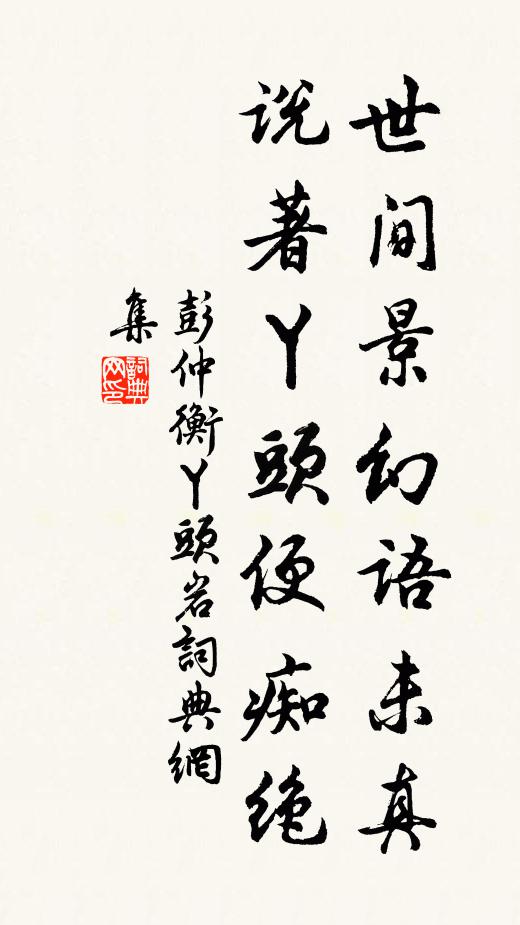 世间景幻语未真
说著丫頭便痴绝
彭仲衡丫頭岩詞典網
集
詞典
网印